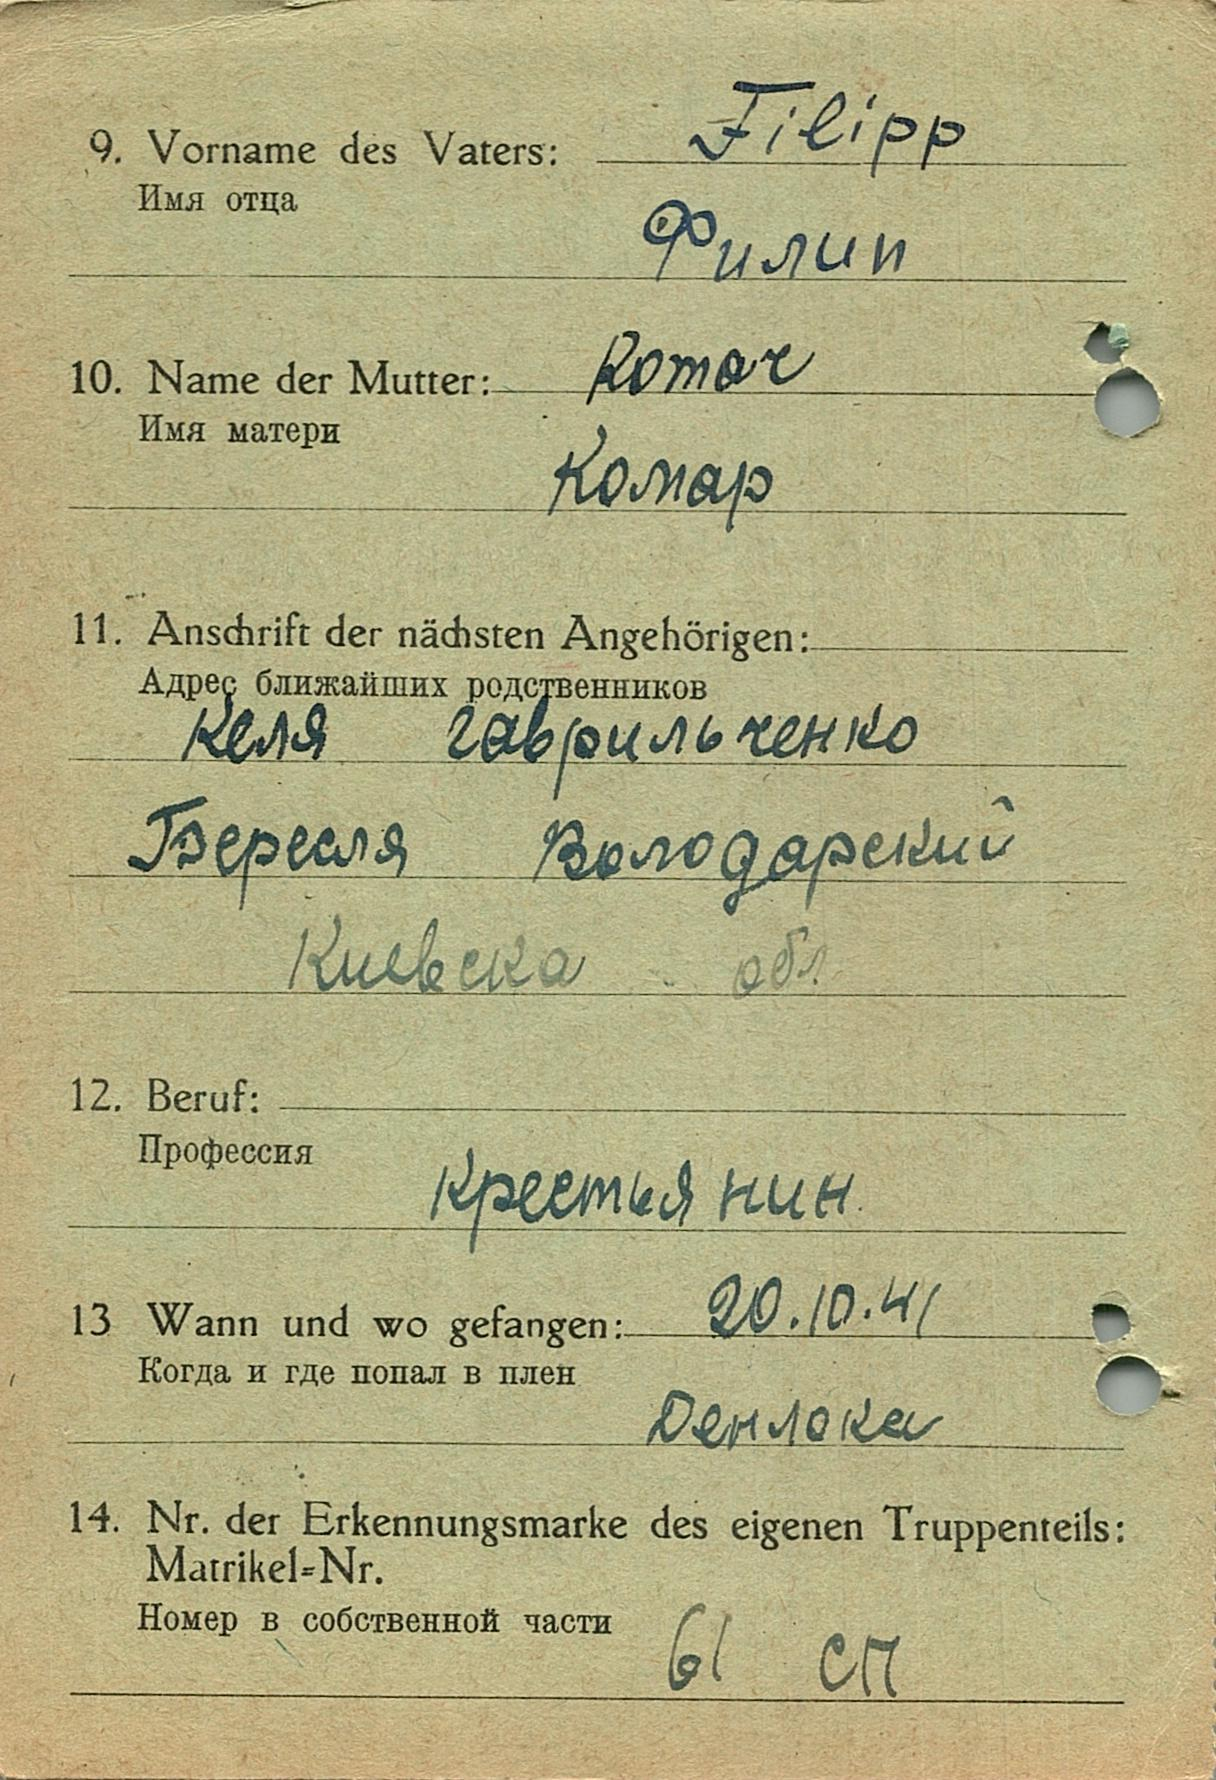 9. Vorname des Vaters: Filipp
Имя отца
Филип
10. Name der Mutter: Komar
Имя матери
Комар
11. Anschrift der nächsten Angehörigen:
Адрес ближайших родственников
Келя гаврильченко
Бересля Володарский
Киевска обл.
12. Beruf:
Профессия
Крестьянин.
13 Wann und wo gefangen: 20.10.41
Когда и где попал в плен
Денлока
14. Nr. der Erkennungsmarke des eigenen Truppenteils:
Matrikel-Nr.
Номер в собственной части
61 сп